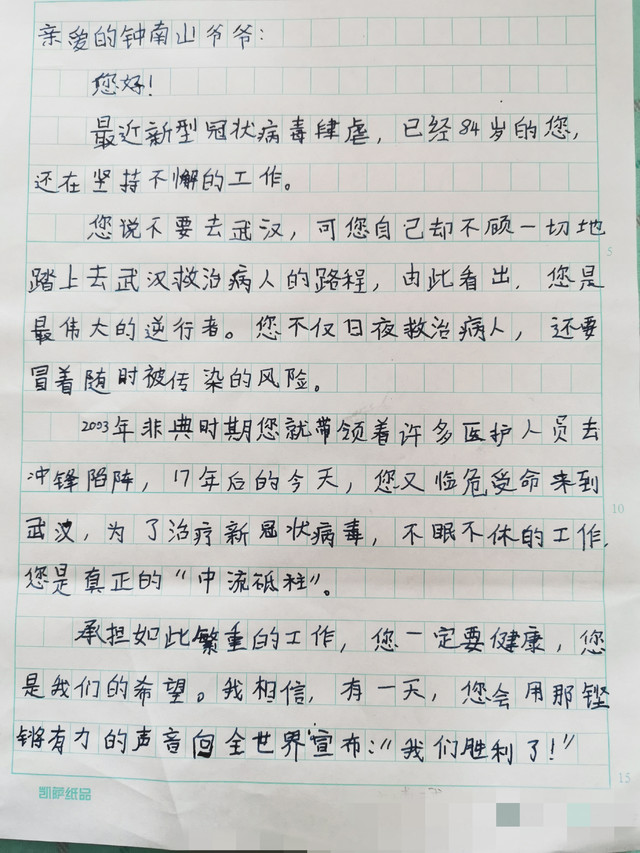 亲爱的钟南山爷爷:
您好!
最近新型冠状病毒肆虐,已经84岁的您,
还在坚持不懈的工作。
您说不要去武汉,可您自己却不顾一切地
踏上去武汉救治病人的路程,由此看出,您是
最伟大的逆行者。您不仅日夜救治病人,还要
冒着随时被传染的风险。
2003年非典时期您就带领着许多医护人员去
冲锋陷阵,17年后的今天,您又临危受命来到
武汉,为了治疗新冠状病毒,不眠不休的工作,
您是真正的“中流砥柱”。
承担如此繁重的工作,您一定要健康,您
是我们的希望。我相信,有一天,您会用那铿
锵有力的声音向全世界宣布:“我们胜利了!”
5
10
15
凯萨纸品